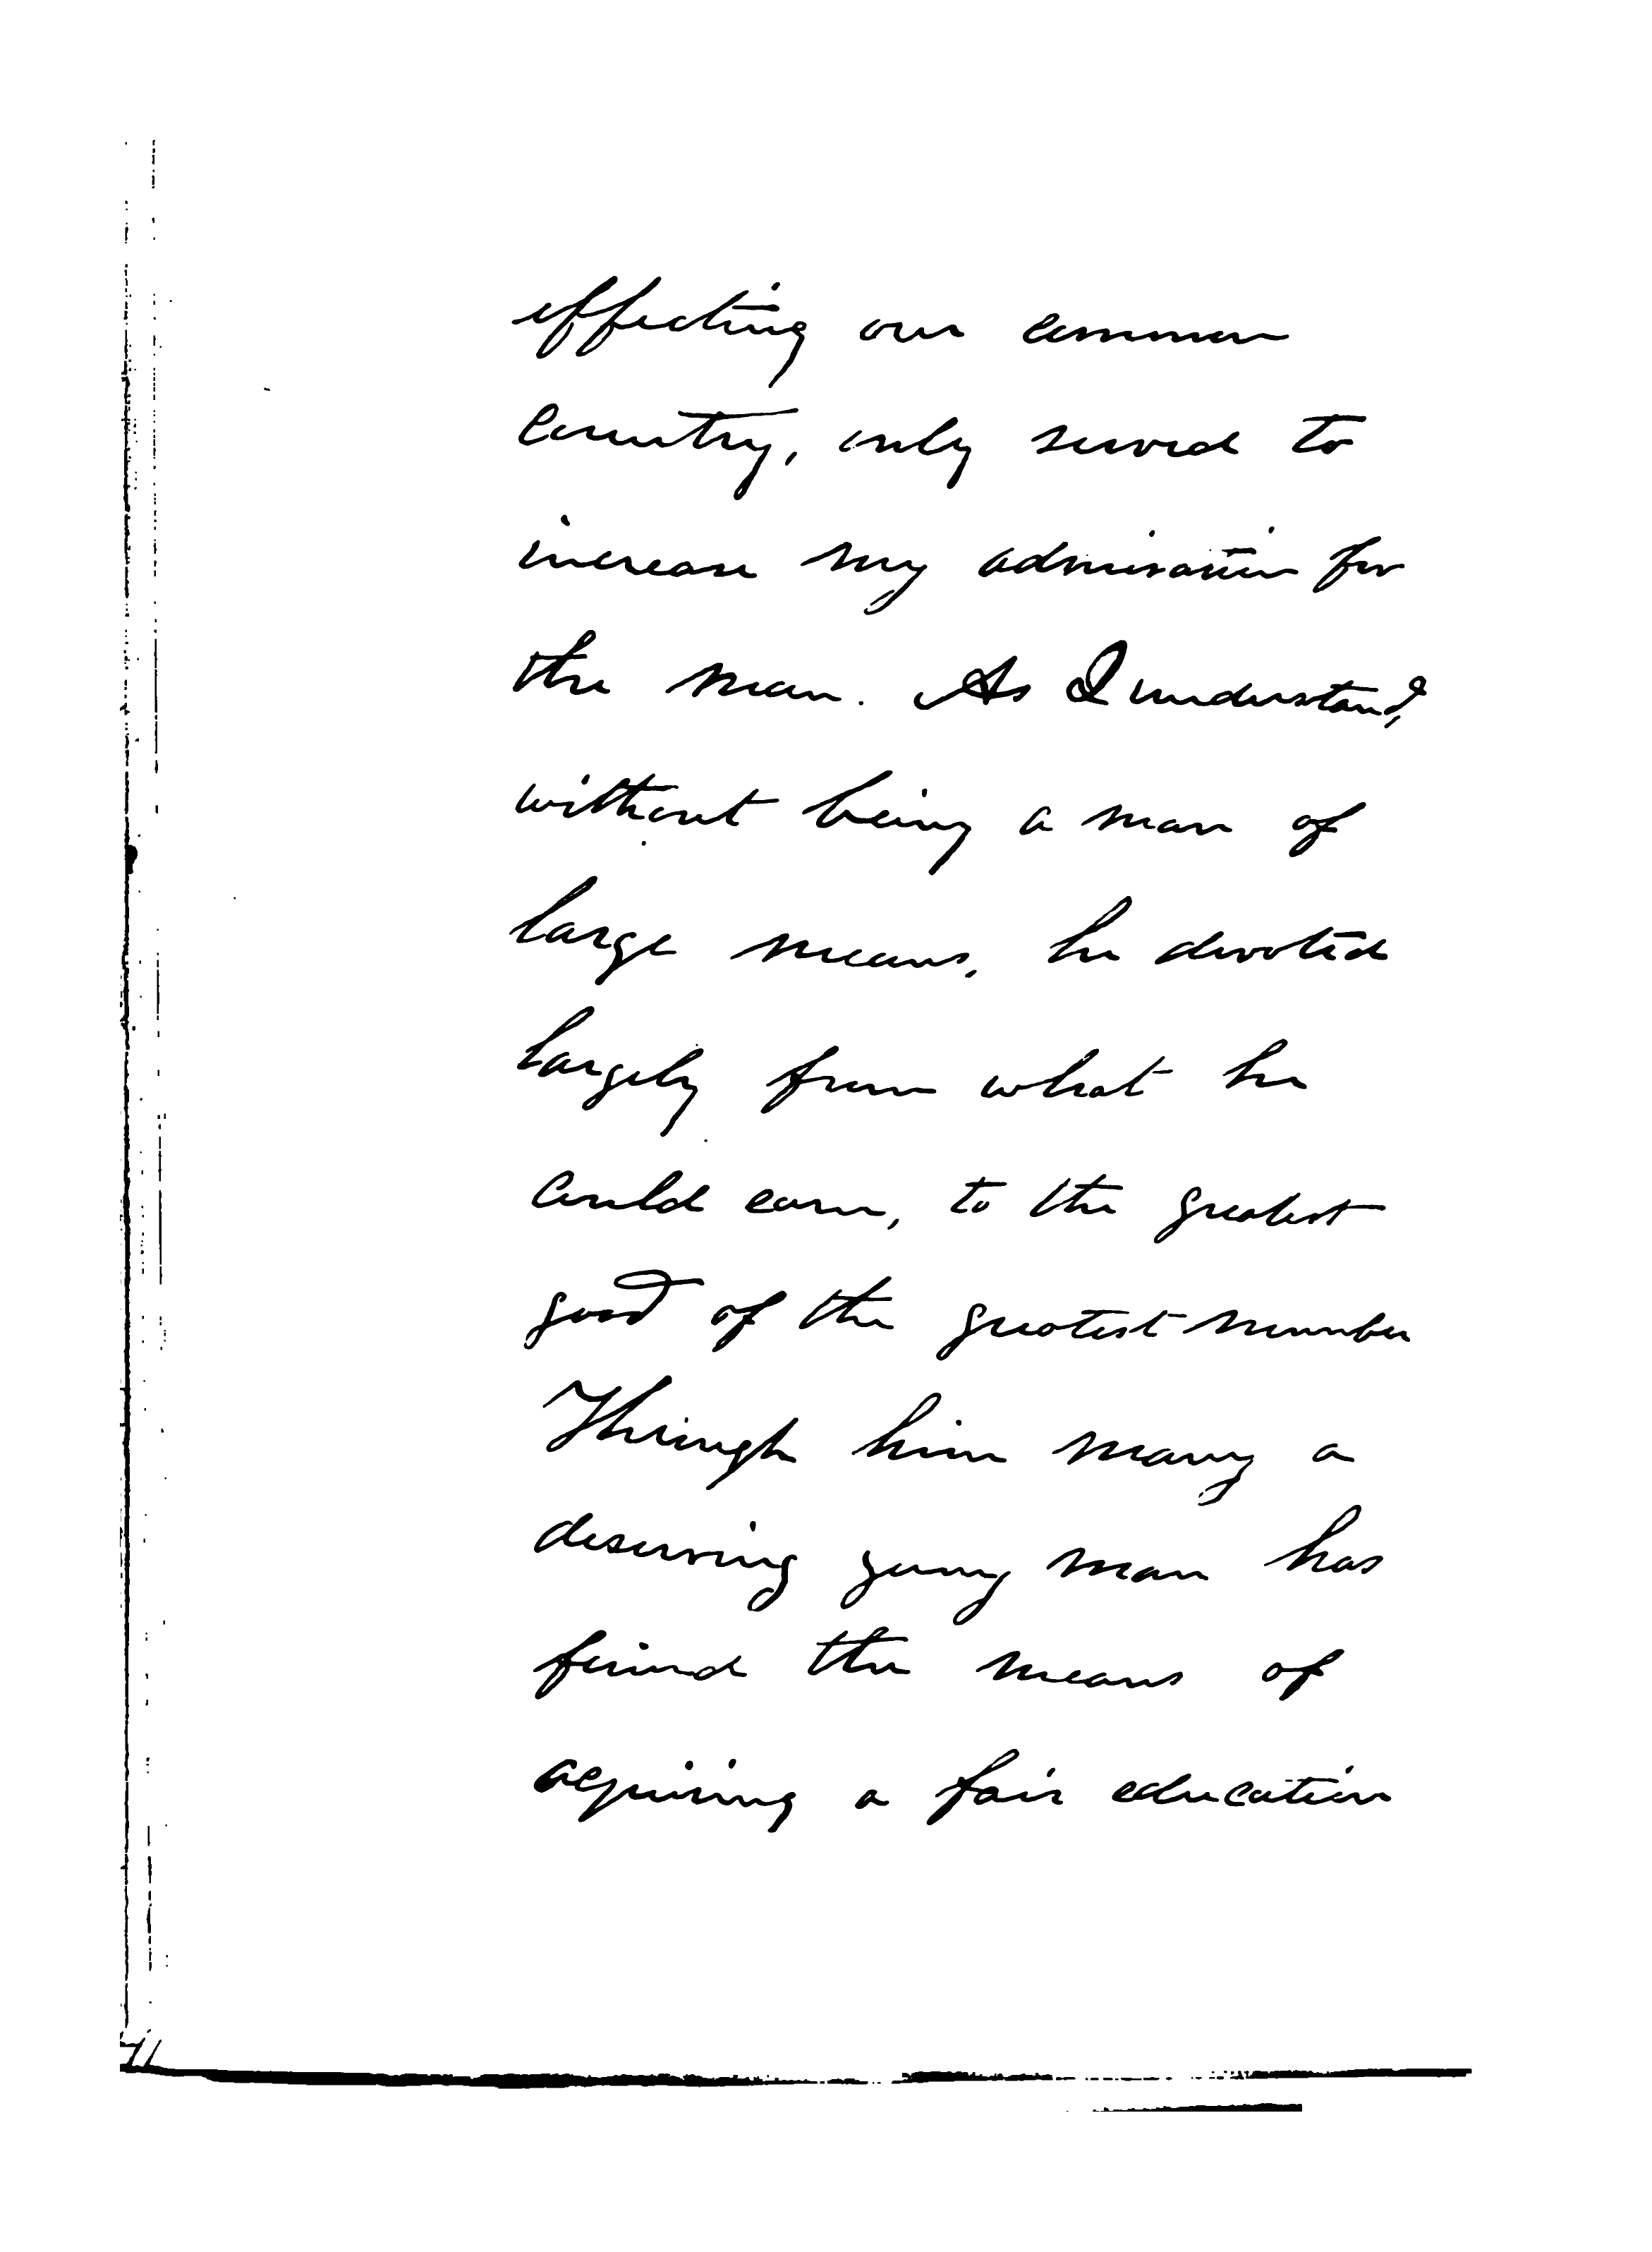 effecting our common
country, only served to
increase my admiration for
the man. As I understand,
without being a man of
large means, he devoted
largely from what he
could earn, to the greatest
good of the greatest number
Through him many a
deserving young man has
found the means of
acquiring a fair education